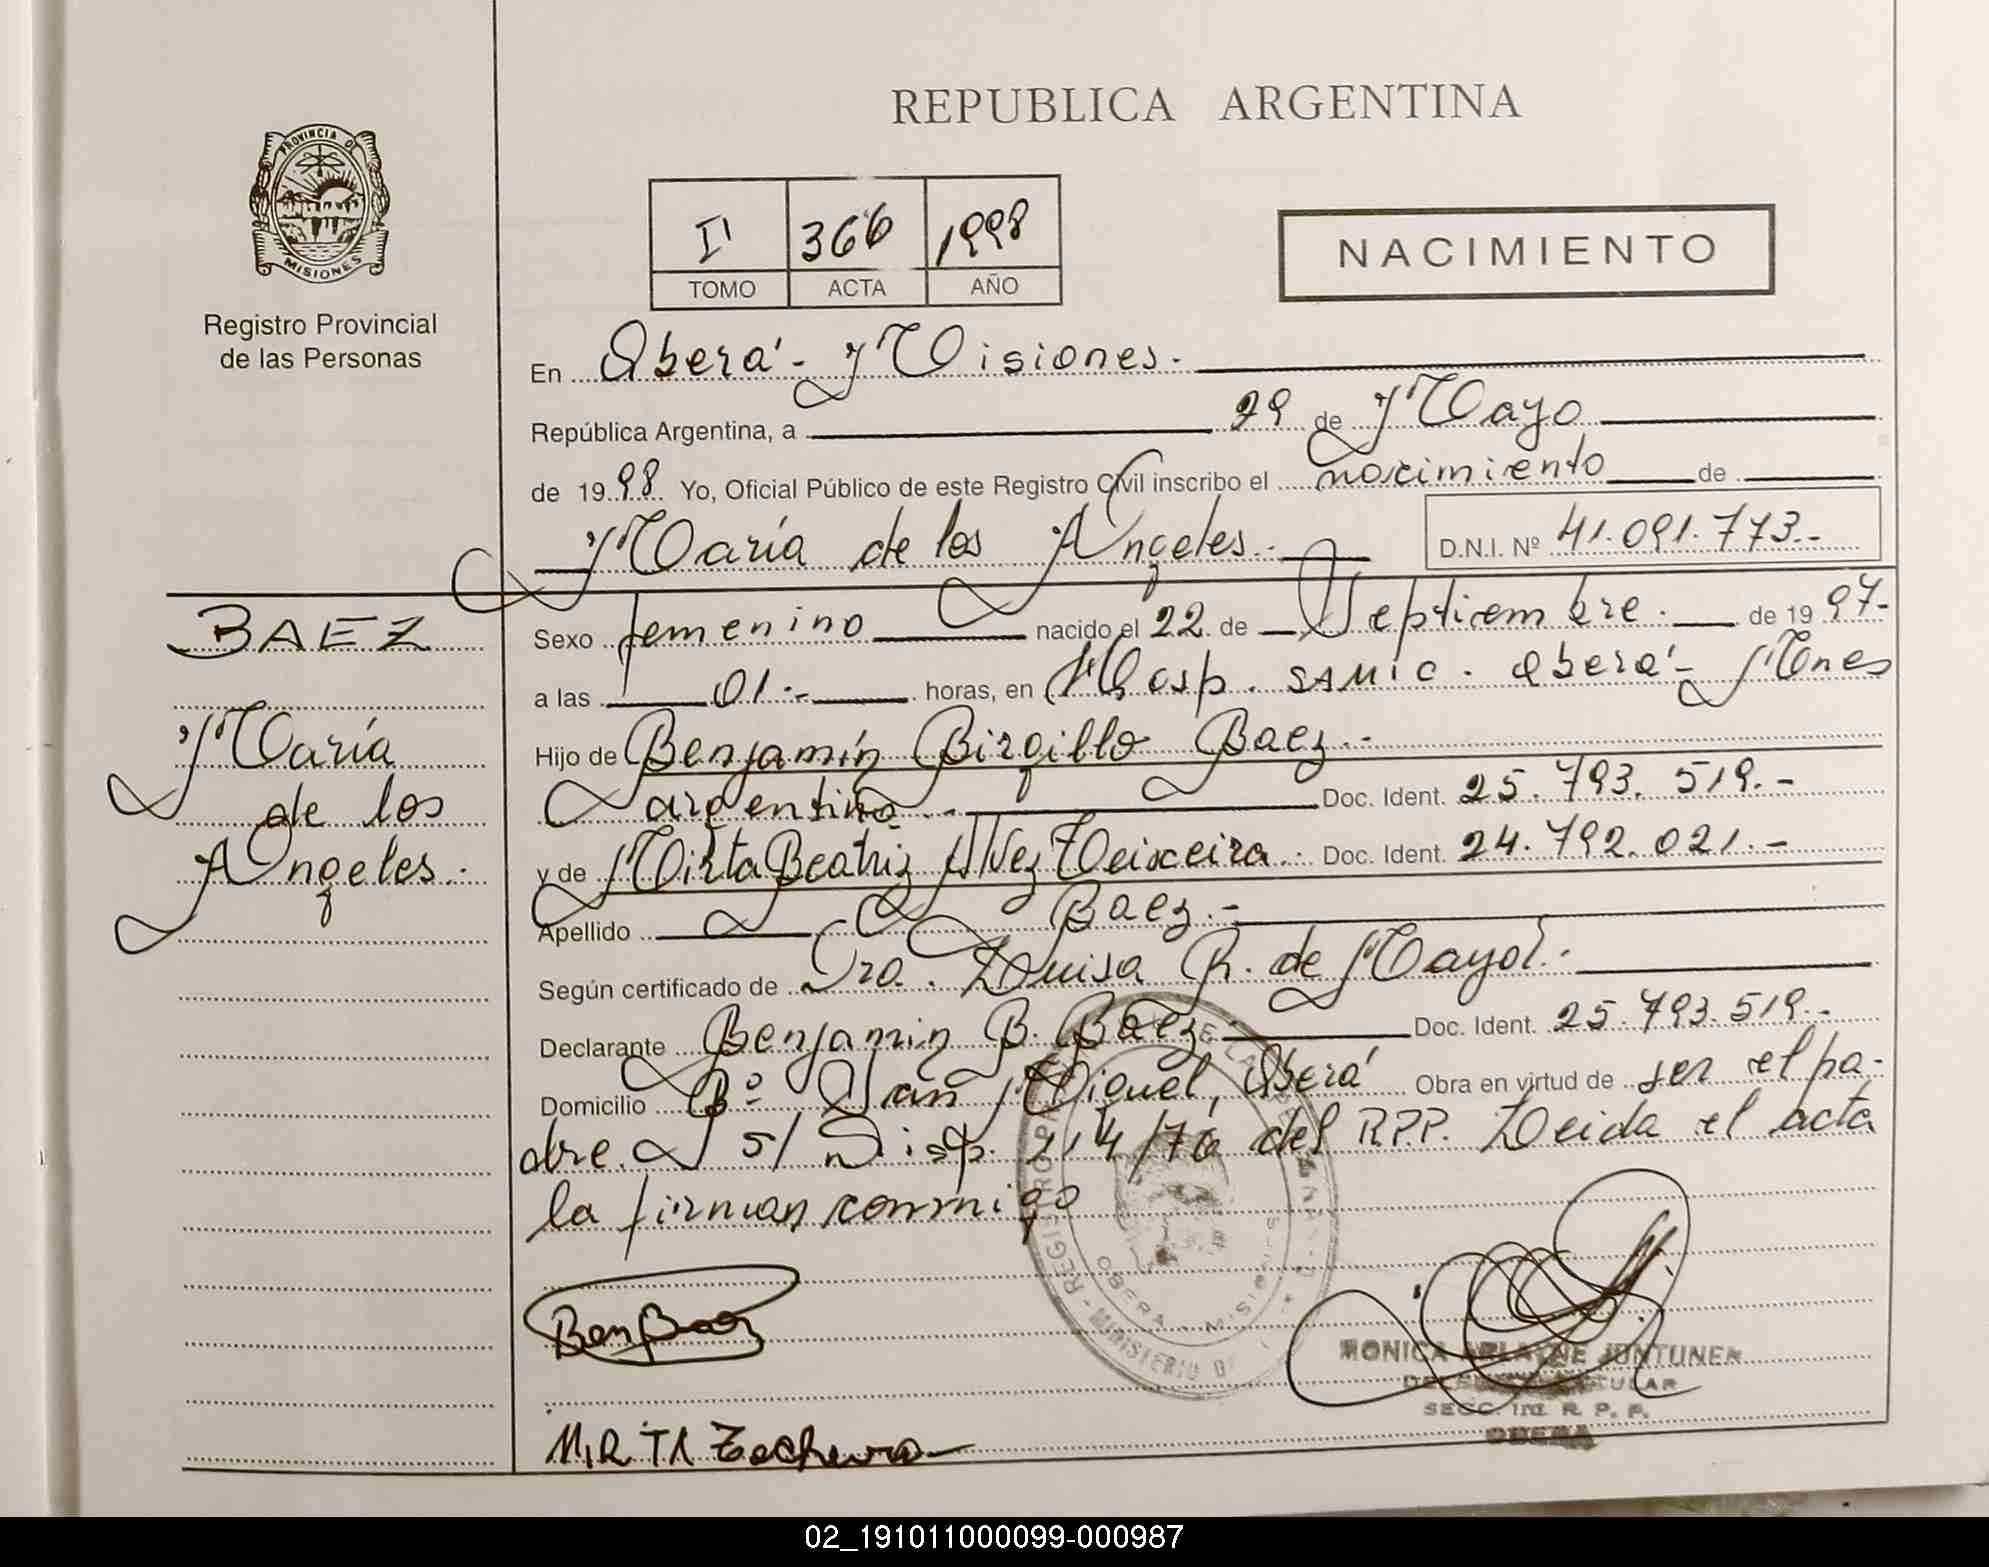 PROVINCIA DE
MISIONES
Registro Provincial
de las Personas
REPUBLICA ARGENTINA
I' 366 1998
TOMO ACTA AÑO
NACIMIENTO
En Oberá - Misiones.
República Argentina, a 29 de Mayo
de 1998. Yo, Oficial Público de este Registro Civil inscribo el nacimiento de
María de los Angeles.- D.N.I. Nº 41.091.773.-
BAEZ
María
de los
Angeles.-
Sexo femenino nacido el 22 de Septiembre. de 1997-
a las 01.- horas, en Hosp. SAMIC. Oberá - Mnes
Hijo de Benjamín Birgilio Baez.-
argentino.- Doc. Ident. 25.793.519.-
y de Mirta Beatriz Alvez Teixeira.- Doc. Ident. 24.792.021.-
Apellido Baez.-
Según certificado de Dra. Luisa R. de Mayol.-
Declarante Benjamin B. Baez- Doc. Ident. 25.793.519.-
Domicilio Bº San Miguel, Oberá Obra en virtud de ser el pa-
dre. s/ Disp. 214/76 del R.P.P. Leida el acta
la firman conmigo
Ben Baez
MIRTA
MONICA ARLAYNE JUNTUNEN
SECC. R. P. P.
OBERA
OBERA - MISIONES
02_191011000099-000987